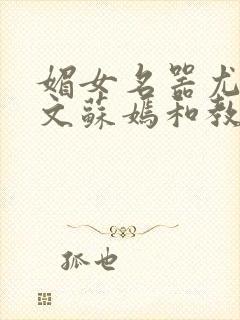 媚女名器尤
文蘇媽和教
孤也